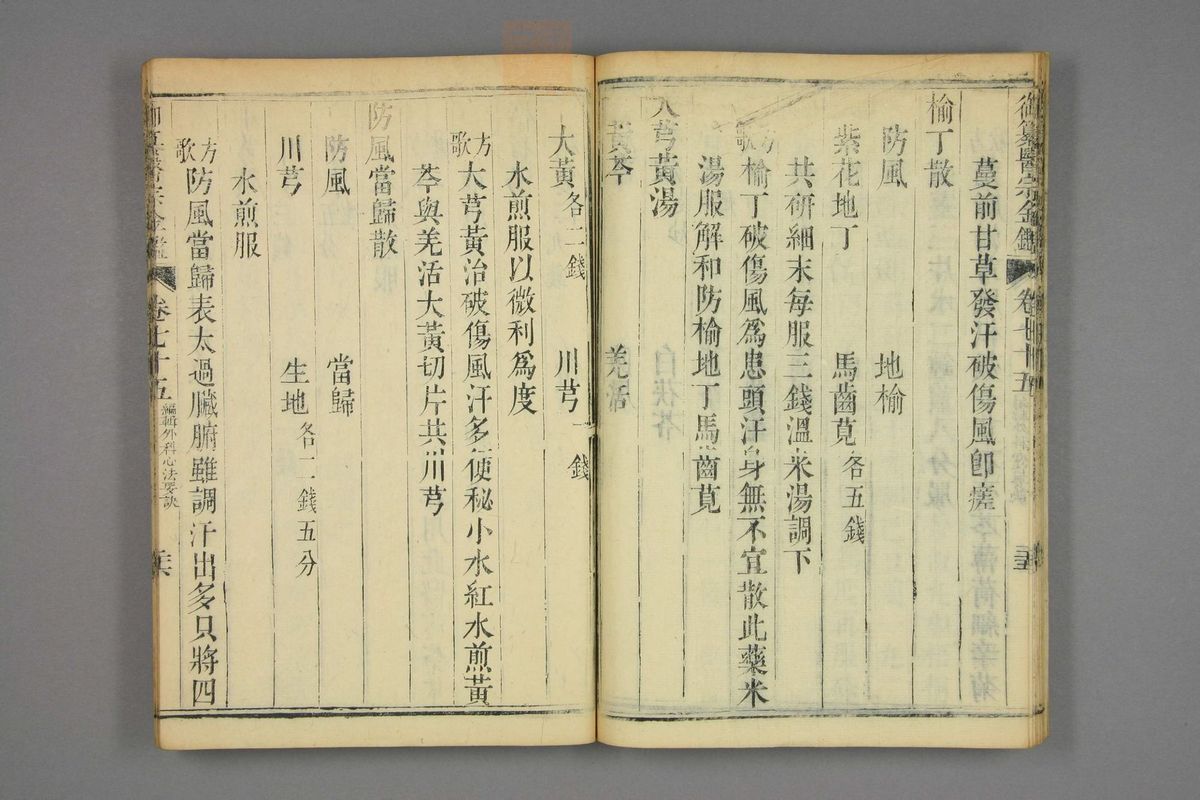 御纂醫宗金鑑 卷七十五
蔓前甘草發汗破傷風卽瘥
榆丁散
防風 地榆
紫花地丁 馬齒莧各五錢
共研細末每服三錢溫米湯調下
方歌 榆丁破傷風爲患頭汗身無不宜散此藥米
湯服解和防榆地丁馬齒莧
大芎黃湯
黃芩 羌活
大黃各二錢 川芎一錢
水煎服以微利爲度
方歌 大芎黃治破傷風汗多便秘小水紅水煎黃
芩與羌活大黃切片共川芎
防風當歸散
防風 當歸
川芎 生地各二錢五分
水煎服
方歌 防風當歸表太過臟腑雖調汗出多只將四
御纂醫宗金鑑 卷七十五 編輯外科心法要訣 三六